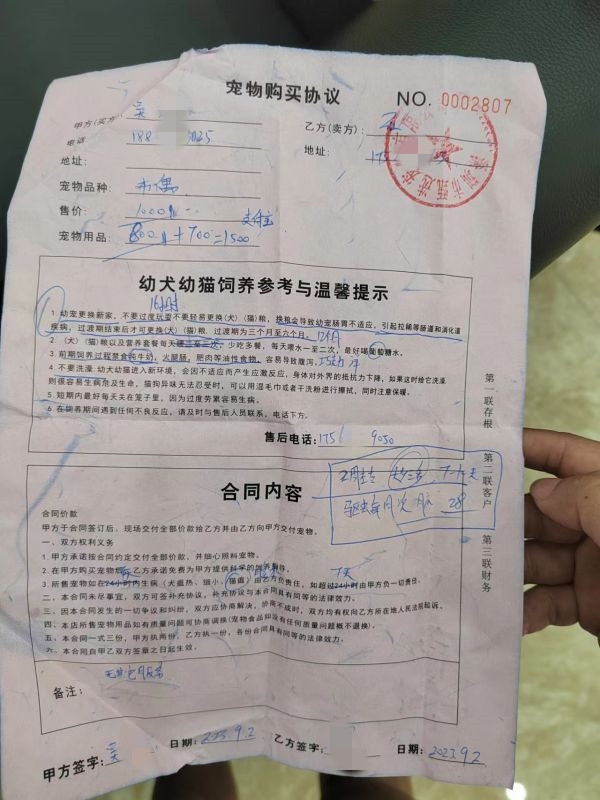 宠物购买协议
NO. 0002807
甲方(买方): 吴
乙方(卖方):
电话 188 3025
地址:
地址: 175
宠物品种: 布偶
售价: 1000 支付宝
宠物用品: 800 + 700 = 1500
幼犬幼猫饲养参考与温馨提示
1. 幼宠更换新家，不要过度玩耍不要轻易更换(犬)(猫)粮，换粮会导致幼宠肠胃不适应，引起拉稀等肠道和消化道
疾病，过渡期结束后才可更换(犬)(猫)粮. 过渡期为三个月至六个月. 12个月
2. (犬)(猫)粮以及营养套餐每天 少吃多餐，每天喂水一至二次，最好喝葡萄糖水。
3. 前期饲养过程禁食纯牛奶，火腿肠，肥肉等油性食物。容易导致腹泻.
4. 不要洗澡: 幼犬幼猫进入新环境，会因不适应而产生应激反应，身体对外界的抵抗力下降，如果这时给它洗澡
则很容易生病危及生命，猫狗异味无法忍受时，可以用湿毛巾或者干洗粉进行擦拭，同时注意保暖。
5. 短期内最好每天关在笼子里，因为过度劳累容易生病.
6. 在饲养期间遇到任何不良反应，请及时与售后人员联系，电话下方.
售后电话: 175 9050
第一联存根
第二联客户
第三联财务
驱虫每月 28
合同内容
合同价款
甲方于合同签订后、现场交付全部价款给乙方并由乙方向甲方交付宠物。
一、双方权利义务
1. 甲方承诺按合同约定交付全部价款、并细心照料宠物。
2. 在甲方购买宠物后，乙方承诺免费为甲方提供科学的饲养指导。
7天
3. 所售宠物如在24小时内生病(犬瘟热、细小、猫瘟)由乙方负责任，如超过24小时由甲方负一切责任。
二、本合同未尽事宜，双方可签补充协议，补充协议与本合同具有同等的法律效力。
三、因本合同发生的一切争议和纠纷，双方应协商解决，协商不成时，双方均有权向乙方所在地人民法院起诉。
四、本店所售宠物用品如有质量问题可协商调换(宠物食品却没有任何质量问题概不退换)。
五、本合同一式三份，甲方执两份，乙方执一份，各份合同具有同等的法律效力。
六、本合同自甲乙双方签章之日起生效。
备注:
甲方签字: 吴 日期: 2023.9.2 乙方签字: 日期: 2023.9.2